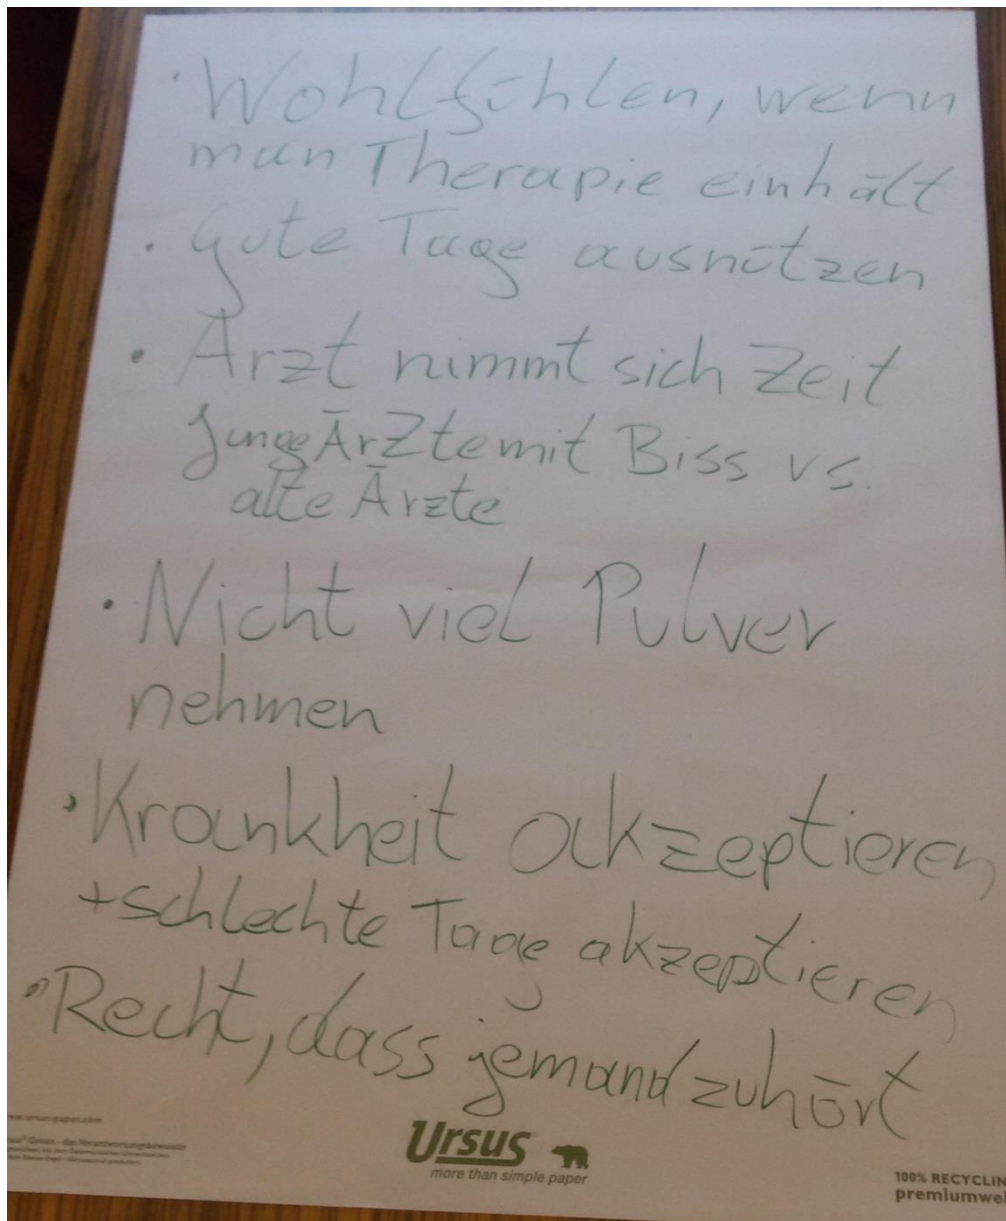 · Wohlfühlen, wenn
man Therapie einhält
· Gute Tage ausnützen
· Arzt nimmt sich Zeit
Junge Ärzte mit Biss vs.
alte Ärzte
· Nicht viel Pulver
nehmen
· Krankheit akzeptieren
+ schlechte Tage akzeptieren
· Recht, dass jemand zuhört
www.ursus-paper.com
Ursus
more than simple paper
100% RECYCLIN
premiumwe